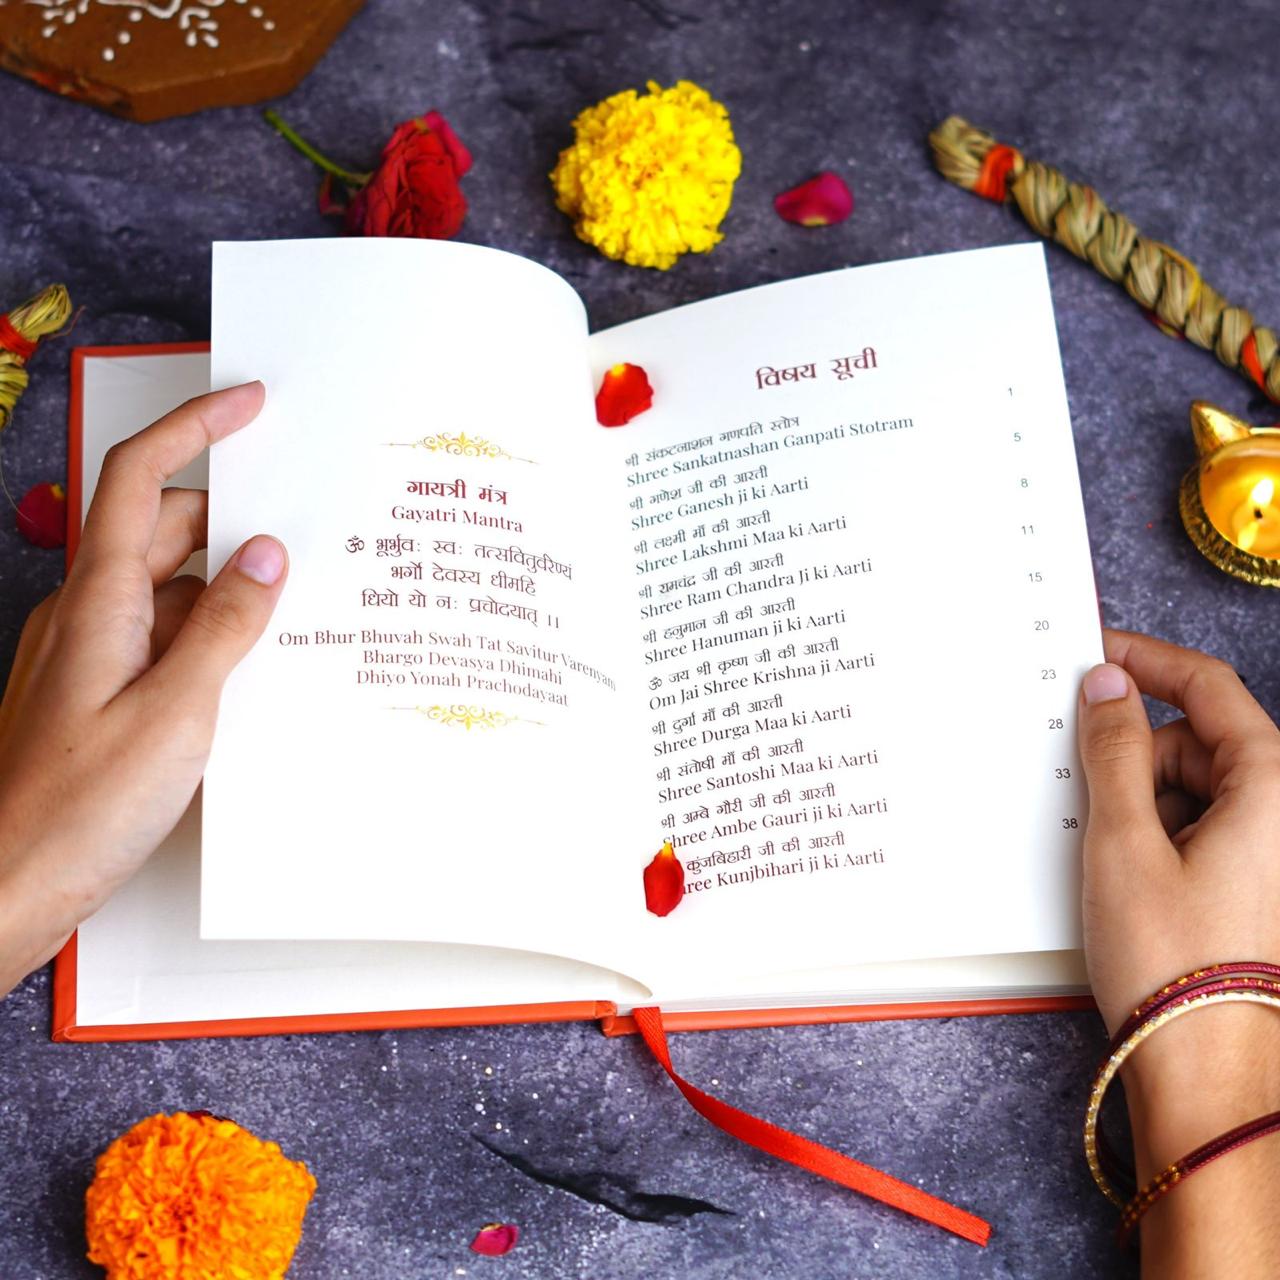 गायत्री मंत्र
Gayatri Mantra
ॐ भूर्भुवः स्वः तत्सवितुर्वरेण्यं
भर्गो देवस्य धीमहि
धियो यो नः प्रचोदयात् ।।
Om Bhur Bhuvah Swah Tat Savitur Varenyam
Bhargo Devasya Dhimahi
Dhiyo Yonah Prachodayaat
विषय सूची
श्री संकटनाशन गणपति स्तोत्र 1
Shree Sankatnashan Ganpati Stotram
श्री गणेश जी की आरती 5
Shree Ganesh ji ki Aarti
श्री लक्ष्मी माँ की आरती 8
Shree Lakshmi Maa ki Aarti
श्री रामचंद्र जी की आरती 11
Shree Ram Chandra Ji ki Aarti
श्री हनुमान जी की आरती 15
Shree Hanuman ji ki Aarti
ॐ जय श्री कृष्ण जी की आरती 20
Om Jai Shree Krishna ji Aarti
श्री दुर्गा माँ की आरती 23
Shree Durga Maa ki Aarti
श्री संतोषी माँ की आरती 28
Shree Santoshi Maa ki Aarti
श्री अम्बे गौरी जी की आरती 33
Shree Ambe Gauri ji ki Aarti
कुंजबिहारी जी की आरती 38
Kunjbihari ji ki Aarti